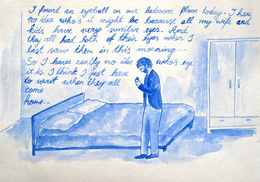 I found an eyeball on our bedroom floor today. I have
no idea who's it might be because all my wife and
kids have very similar eyes. And
they all had both of their eyes when I
last saw them in this morning...
So I have really no idea who's eye
it is. I think I just have
to wait when they all
come
home...